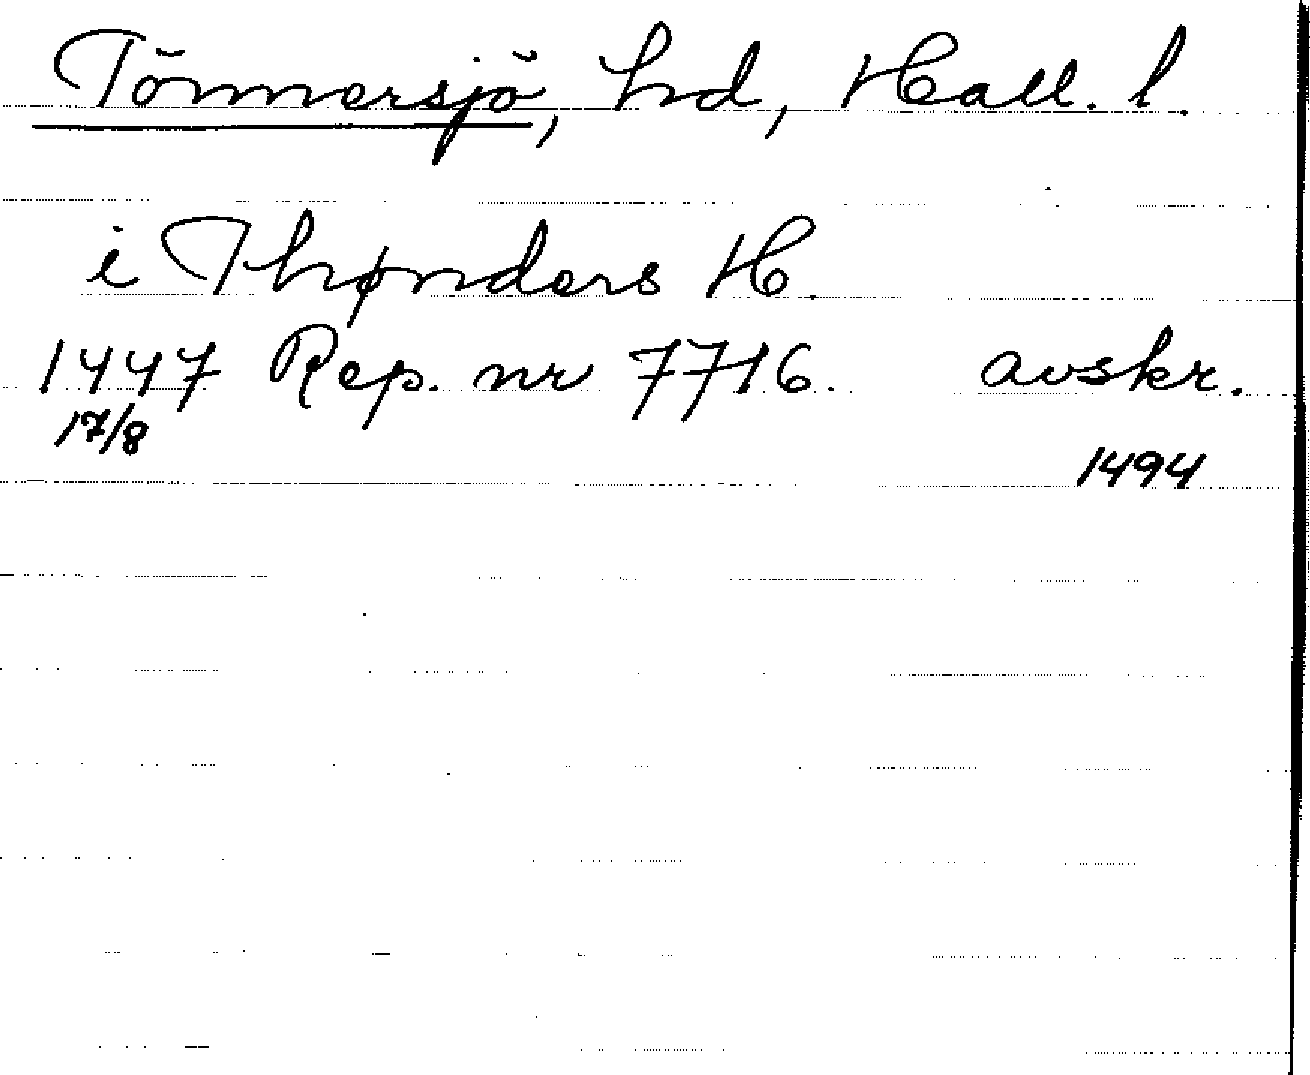 Tönnersjö, hd, Hall. l.
i Thønders H.
1447 Rep. nr 7716. avskr.
17/8
1494